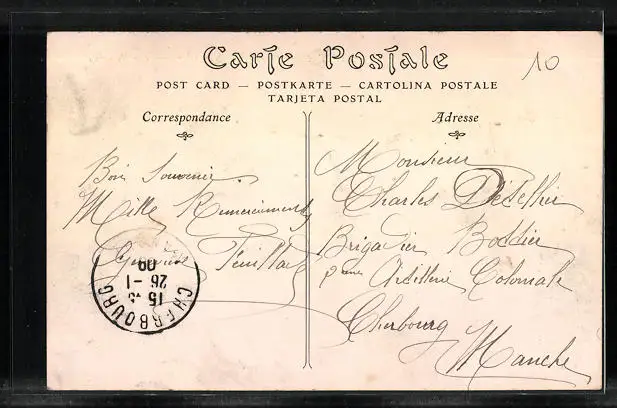 Carte Postale
POST CARD — POSTKARTE — CARTOLINA POSTALE
TARJETA POSTAL
10
Correspondance
Bon Souvenir
Mille Remerciements
Feuillard
CHERBOURG
15
26 - 1
09
Adresse
Monsieur
Charles
Brigadier
Artillerie Coloniale
Cherbourg
Manche